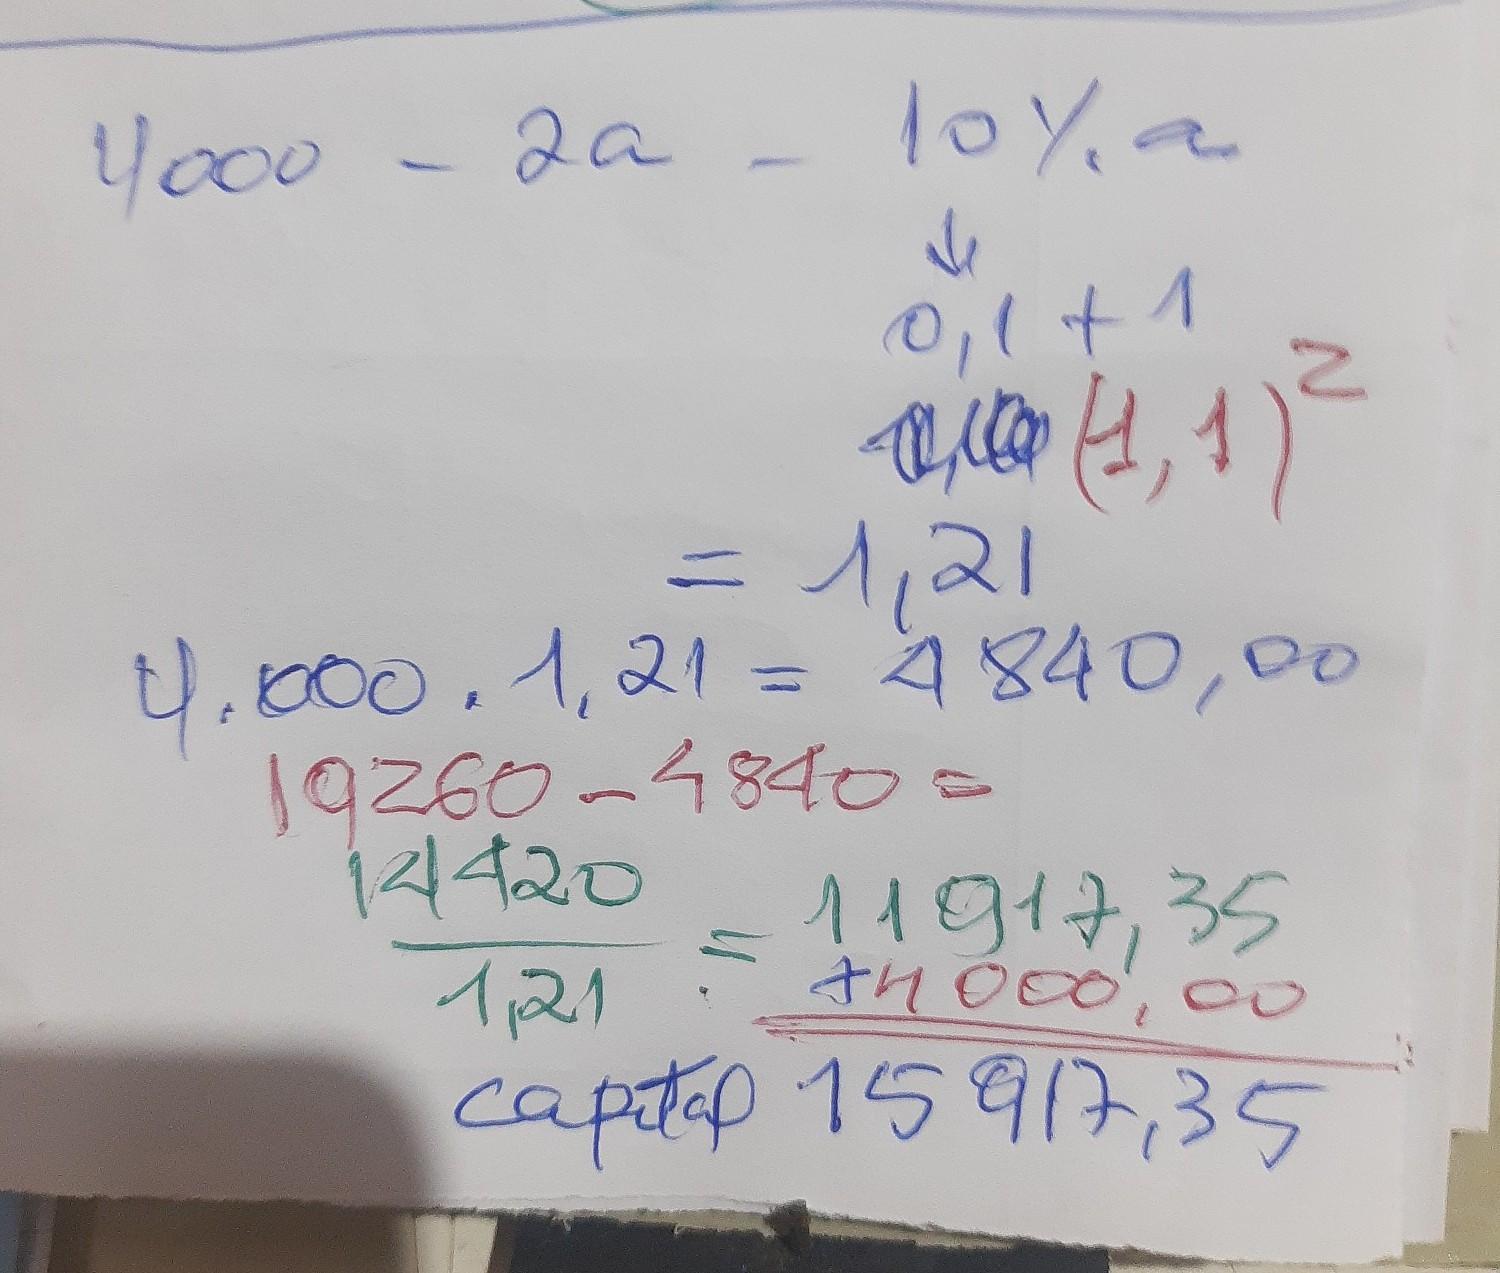 4000 - 2a - 10%. a
↓
0,1 + 1
(1,1)²
= 1,21
4.000 . 1,21 = 4840,00
19260 - 4840 =
14420
1,21
= 11917,35
+4000,00
capital 15917,35